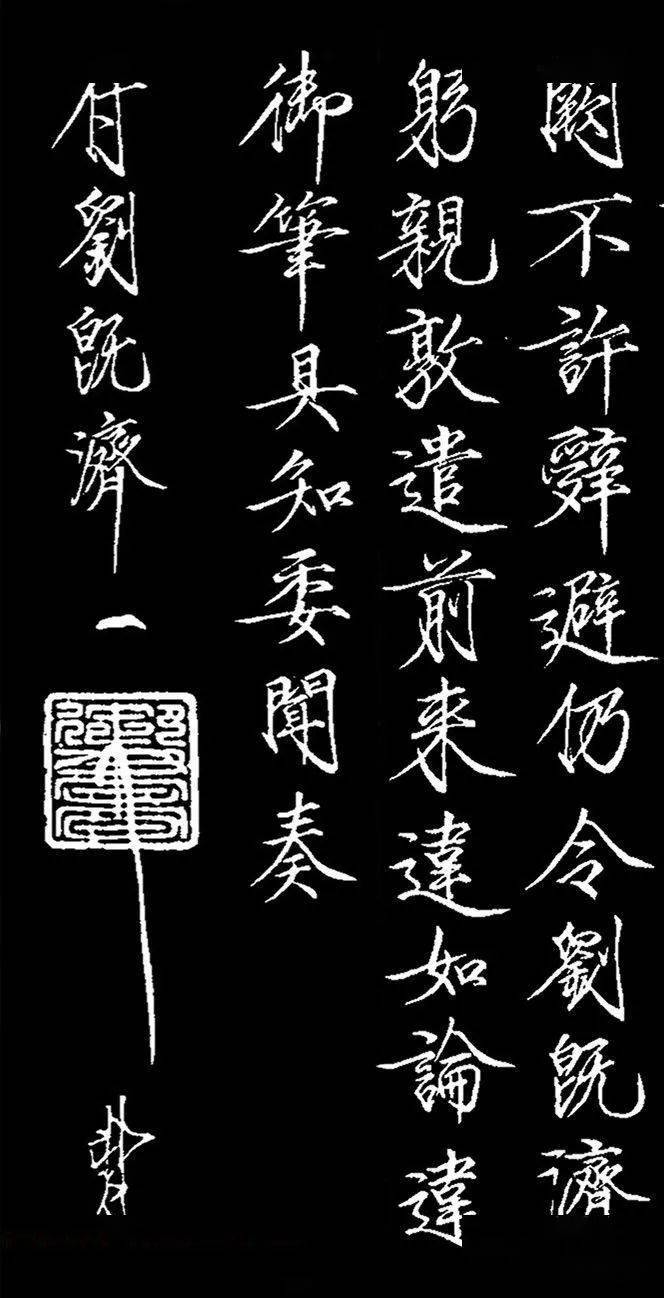 闕不許辭避仍令劉既濟
躬親敦遣前来違如論違
御筆具知委聞奏
付劉既濟